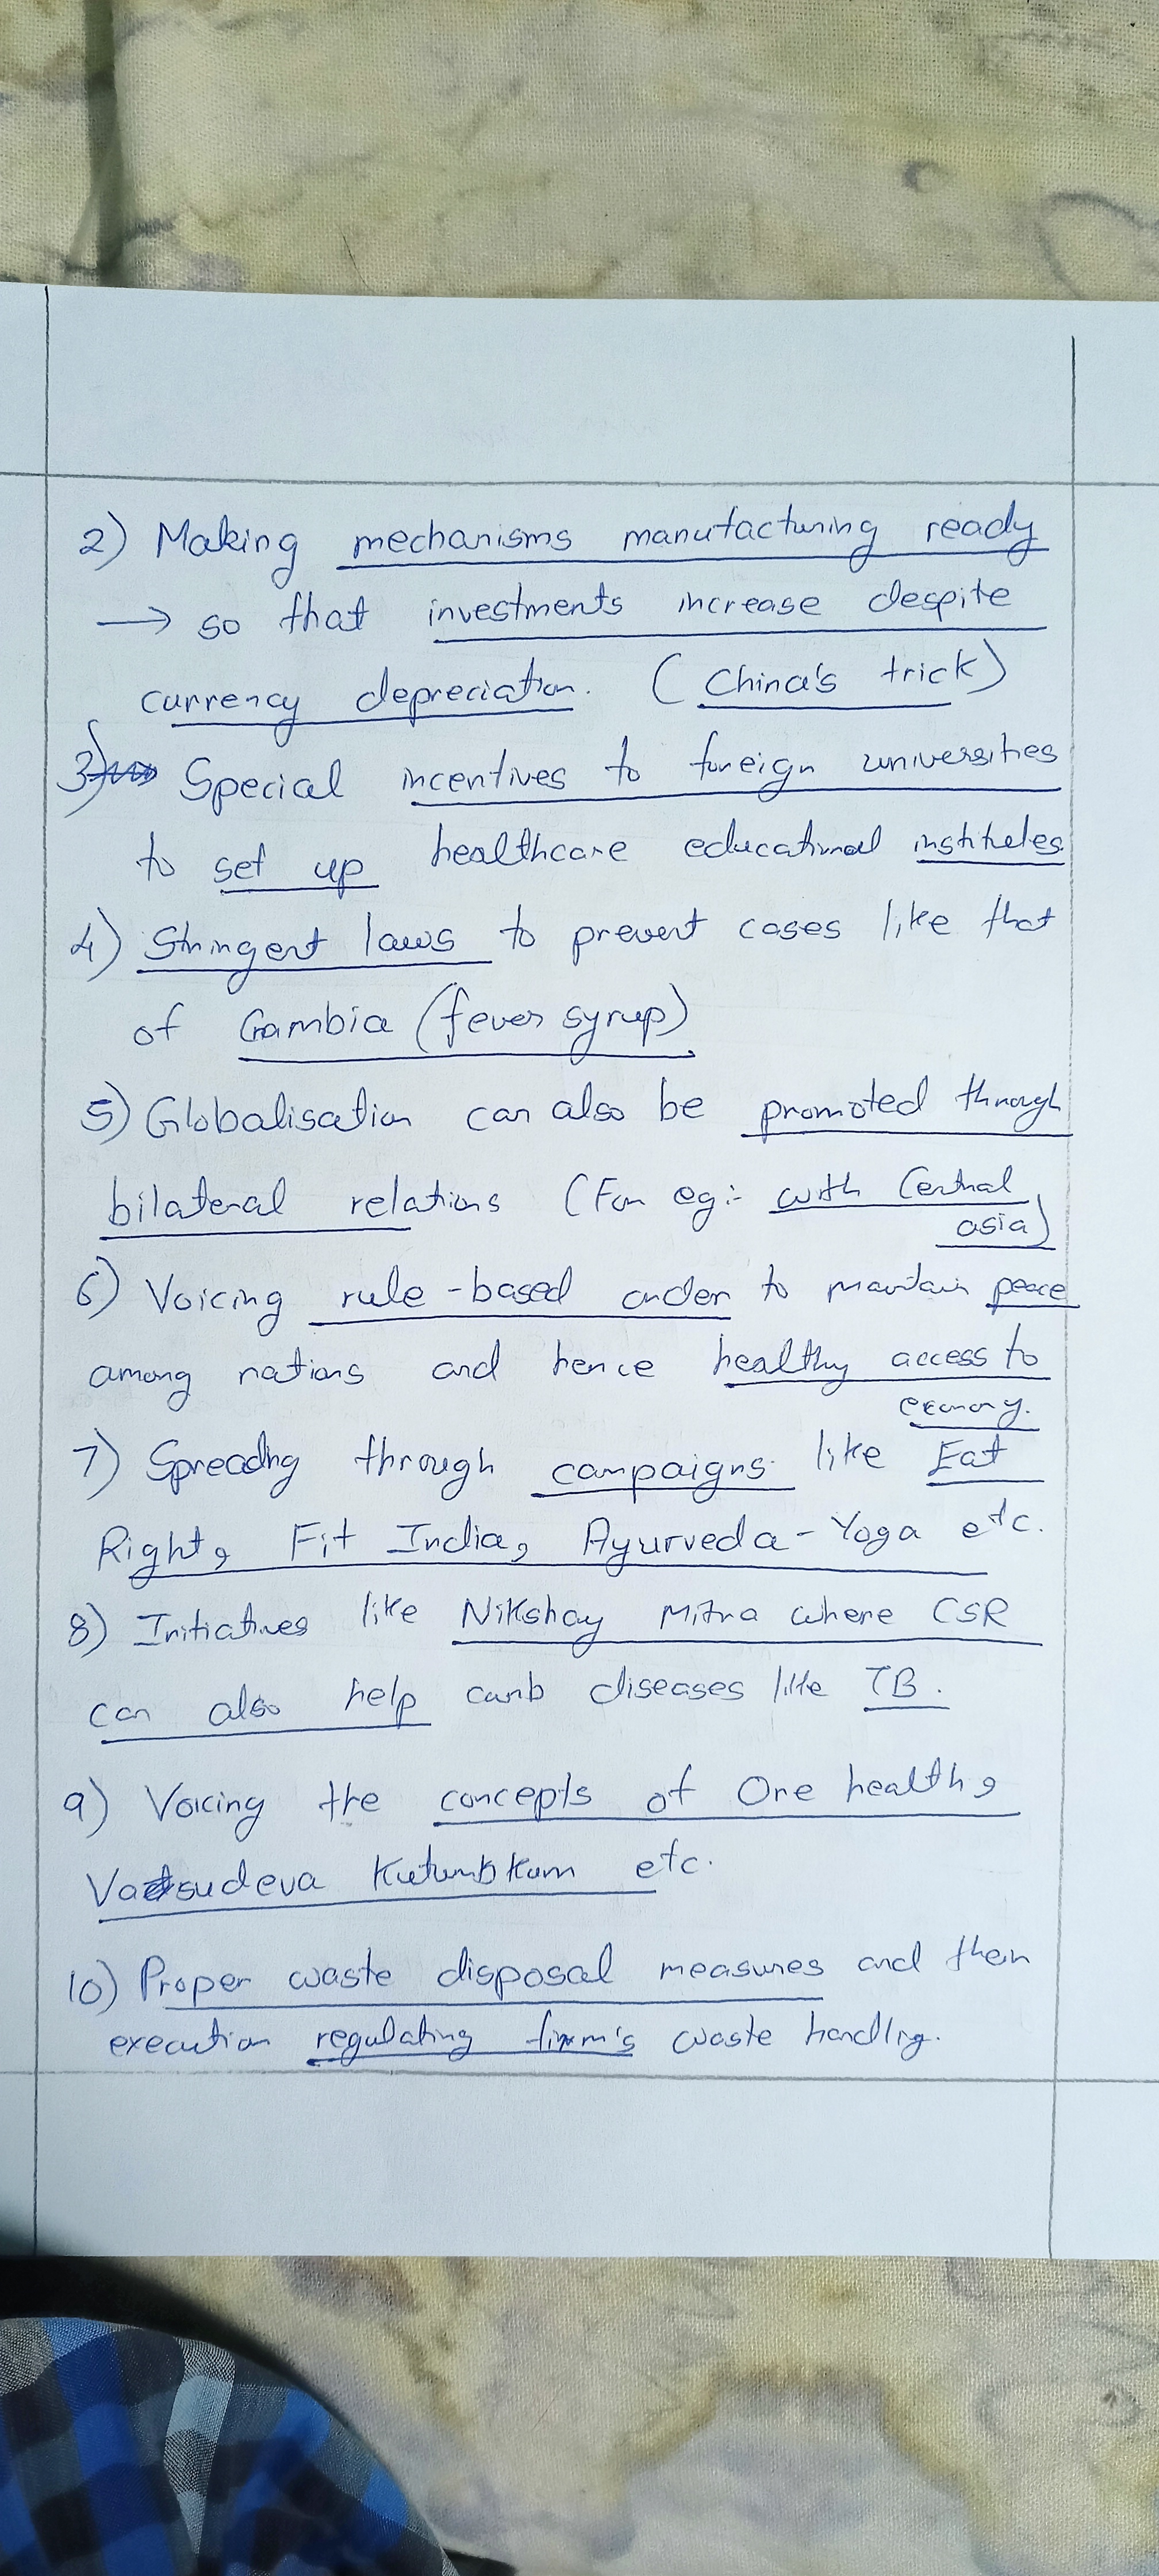 2) Making mechanisms manufacturing ready
→ so that investments increase despite
currency depreciation. (China's trick)
3) Special incentives to foreign universities
to set up healthcare educational institutes
4) Stringent laws to prevent cases like that
of Gambia (fever syrup)
5) Globalisation can also be promoted through
bilateral relations (For eg:- with Central
asia)
6) Voicing rule-based order to maintain peace
among nations and hence healthy access to
economy.
7) Spreading through campaigns like Eat
Right, Fit India, Ayurveda - Yoga etc.
8) Initiatives like Nikshay Mitra where CSR
can also help curb diseases like TB.
9) Voicing the concepts of One health,
Vasudeva Kutumbkum etc.
10) Proper waste disposal measures and then
execution regulating firm's waste handling.